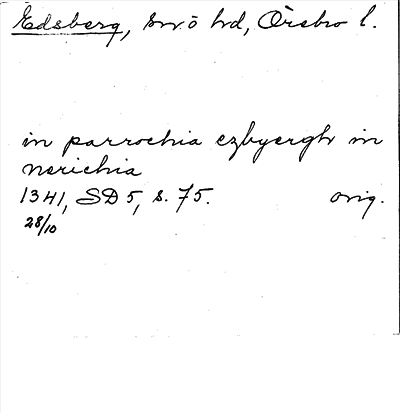 Edsberg, sn ö hd, Örebro l.
in parrochia ezbyergh in
nerichia
1341, SD 5, s. 75. orig.
28/10